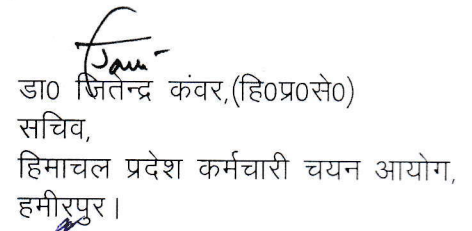 डा0 जितेन्द्र कंवर,(हि0प्र0से0)
सचिव,
हिमाचल प्रदेश कर्मचारी चयन आयोग,
हमीरपुर।